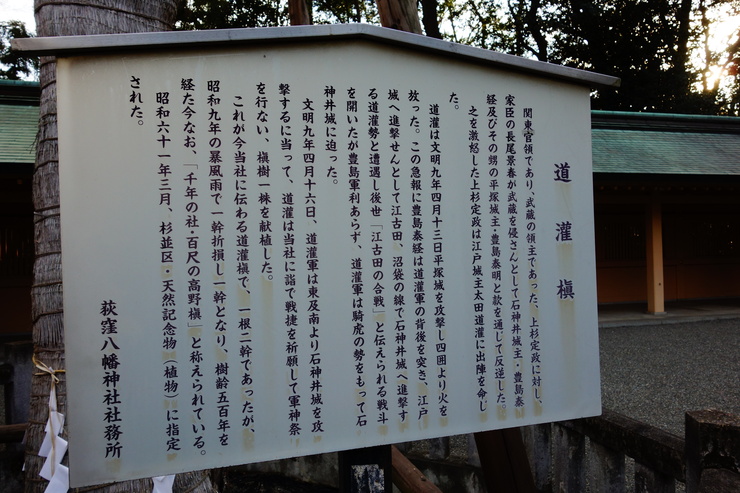 道灌槇
関東官領であり、武蔵の領主であった、上杉定政に対し、
家臣の長尾景春が武蔵を侵さんとして石神井城主・豊島泰
経及びその甥の平塚城主・豊島泰明と款を通じて反逆した。
之を激怒した上杉定政は江戸城主太田道灌に出陣を命じ
た。
道灌は文明九年四月十三日平塚城を攻撃し四囲より火を
放った。この急報に豊島泰経は道灌軍の背後を突き、江戸
城へ進撃せんとして江古田、沼袋の線で石神井城へ進撃す
る道灌勢と遭遇し後世「江古田の合戦」と伝えられる戦斗
を開いたが豊島軍利あらず、道灌軍は騎虎の勢をもって石
神井城に迫った。
文明九年四月十六日、道灌軍は東及南より石神井城を攻
撃するに当って、道灌は当社に詣で戦捷を祈願して軍神祭
を行ない、槇樹一株を献植した。
これが今当社に伝わる道灌槇で、一根二幹であったが、
昭和九年の暴風雨で一幹折損し一幹となり、樹齢五百年を
経た今なお、「千年の社・百尺の高野槇」と称えられている。
昭和六十一年三月、杉並区・天然記念物（植物）に指定
された。
荻窪八幡神社社務所